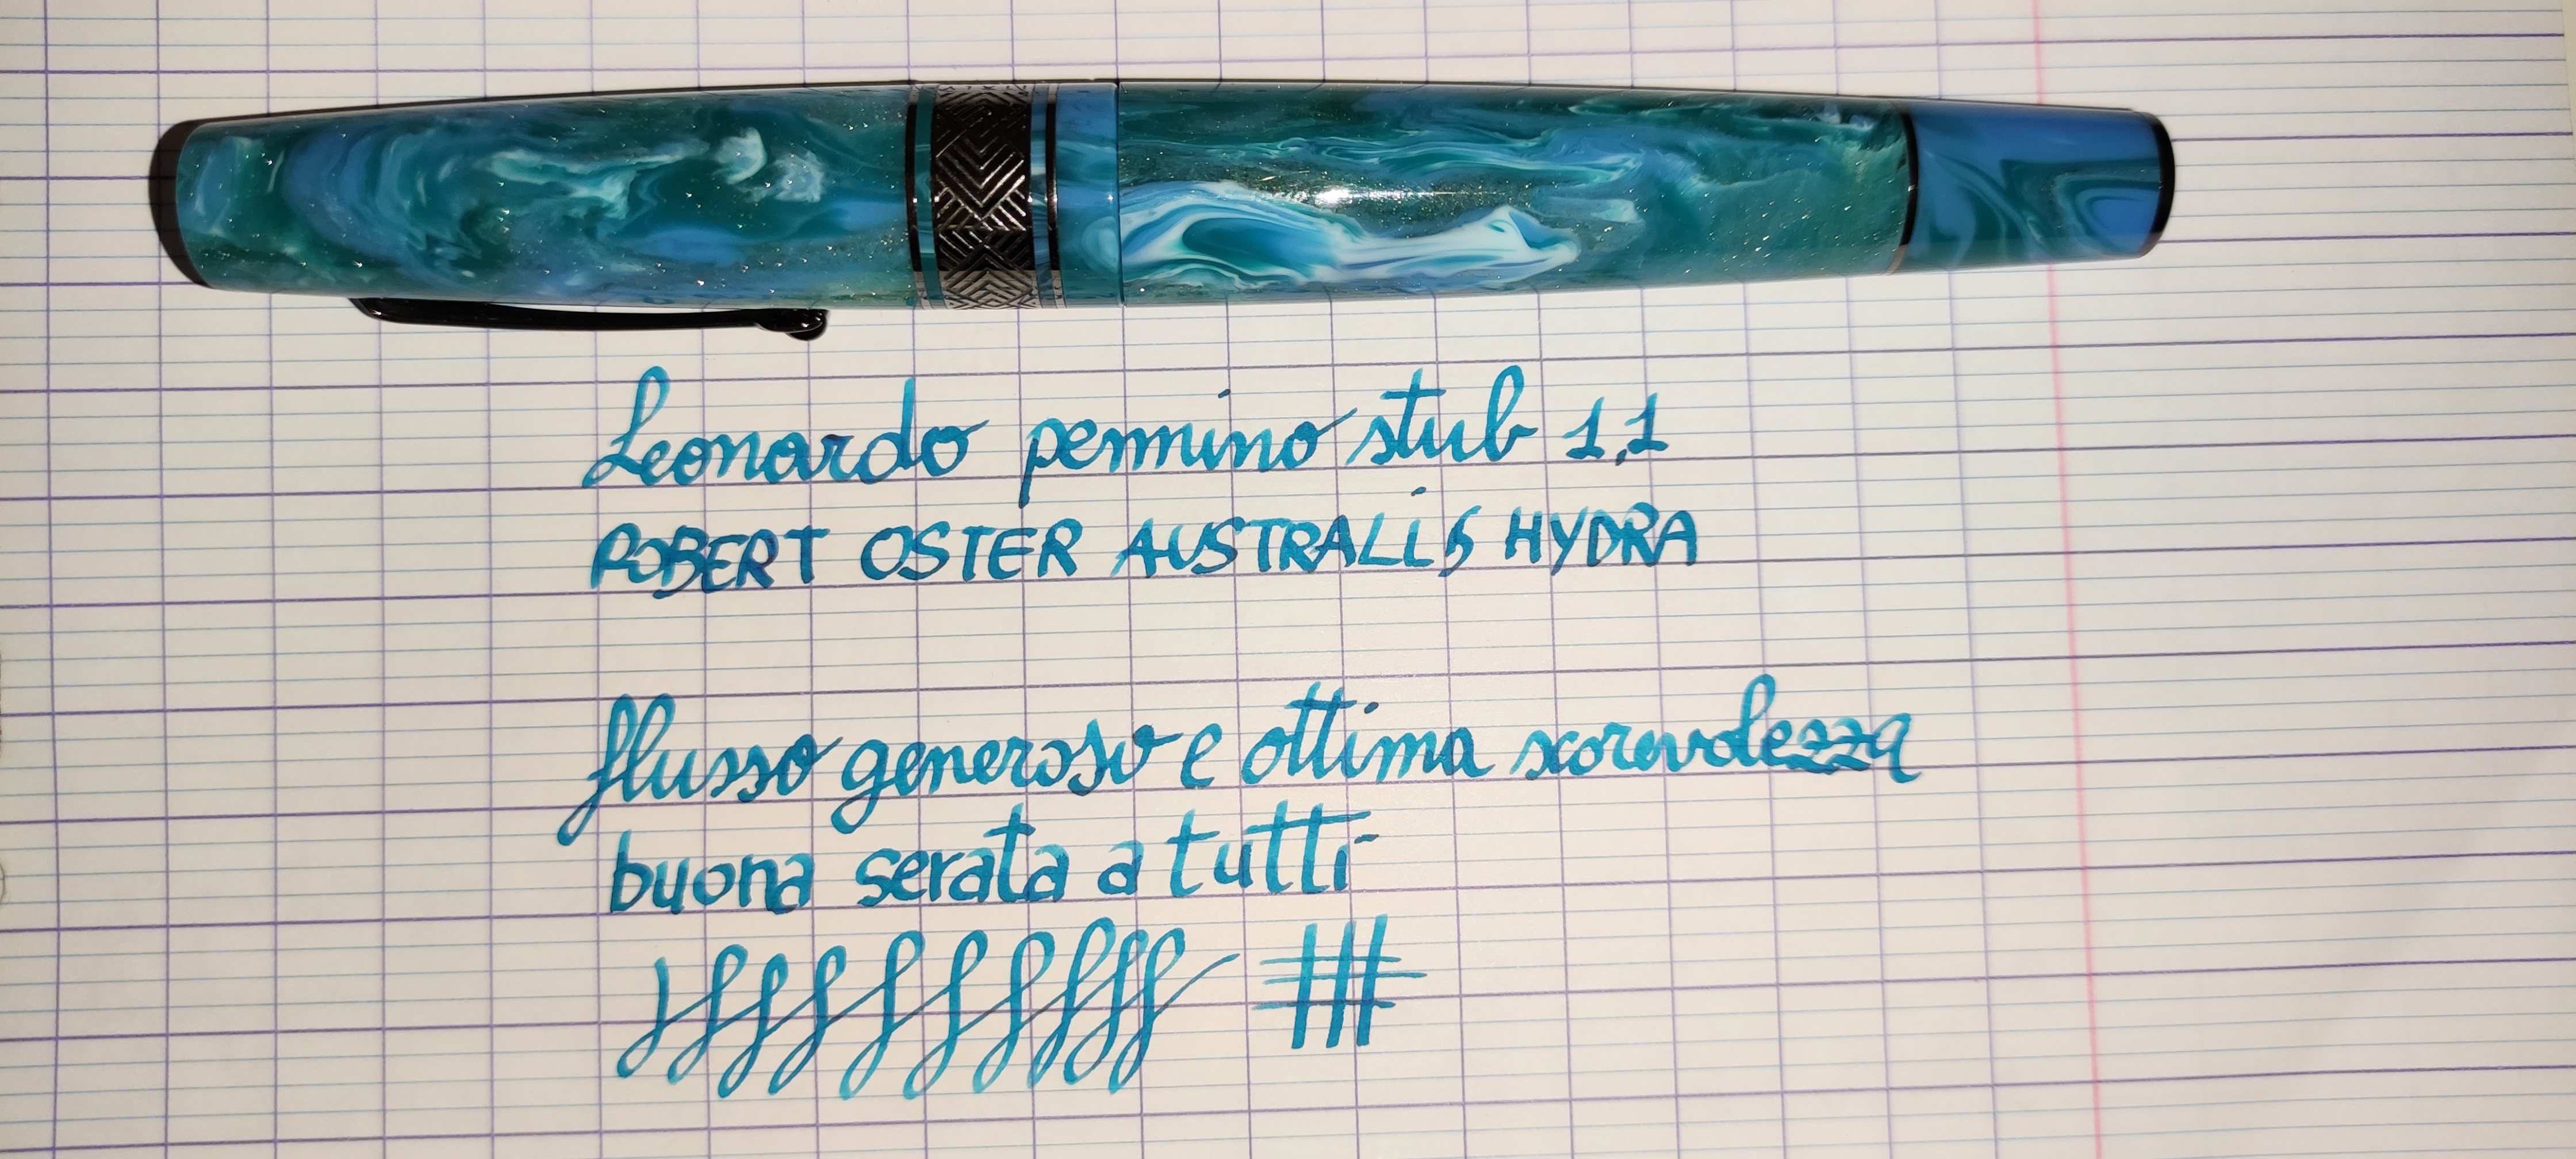 Leonardo pennino stub 1,1
ROBERT OSTER AUSTRALiS HYDRA
flusso generoso e ottima scorevolezza
buona serata a tutti